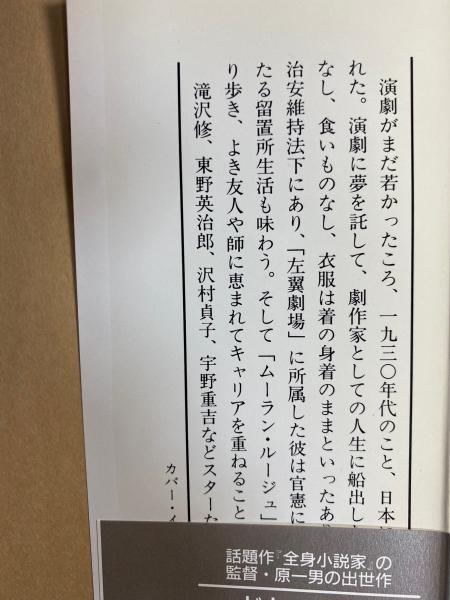 演劇がまだ若かったころ、一九三〇年代のこと、日本
れた。演劇に夢を託して、劇作家としての人生に船出し
なし、食いものなし、衣服は着の身着のままといったあ
治安維持法下にあり、「左翼劇場」に所属した彼は官憲に
たる留置所生活も味わう。そして「ムーラン・ルージュ」
り歩き、よき友人や師に恵まれてキャリアを重ねること
滝沢修、東野英治郎、沢村貞子、宇野重吉などスターた
カバー・
話題作『全身小説家』の
監督・原一男の出世作